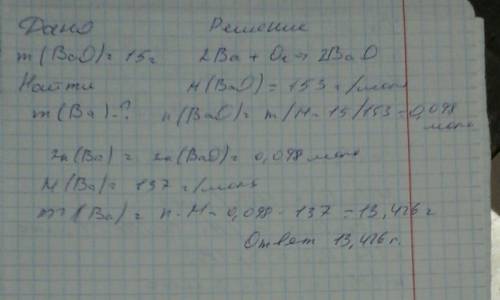 Дано Решение
m(BaO)=15г 2Ba + O₂ → 2BaO
Найти M(BaO) = 153 г/моль
m(Ba)-? n(BaO)= m/M = 15/153 = 0,098 моль
2n(Ba) = 2n(BaO) = 0,098 моль
M(Ba) = 137 г/моль
m(Ba) = n·M = 0,098 · 137 = 13,426 г
Ответ 13,426 г.